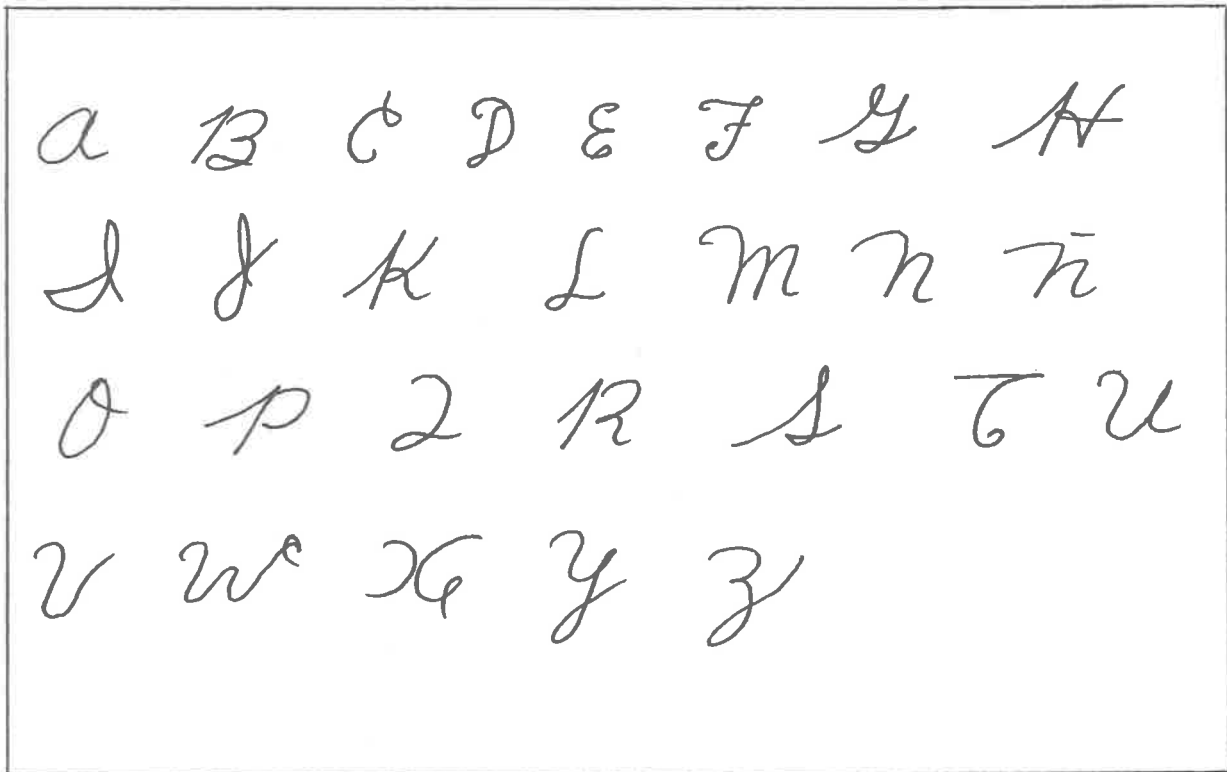 A B C D E F G H
I J K L M N Ñ
O P Q R S T U
V W X Y Z